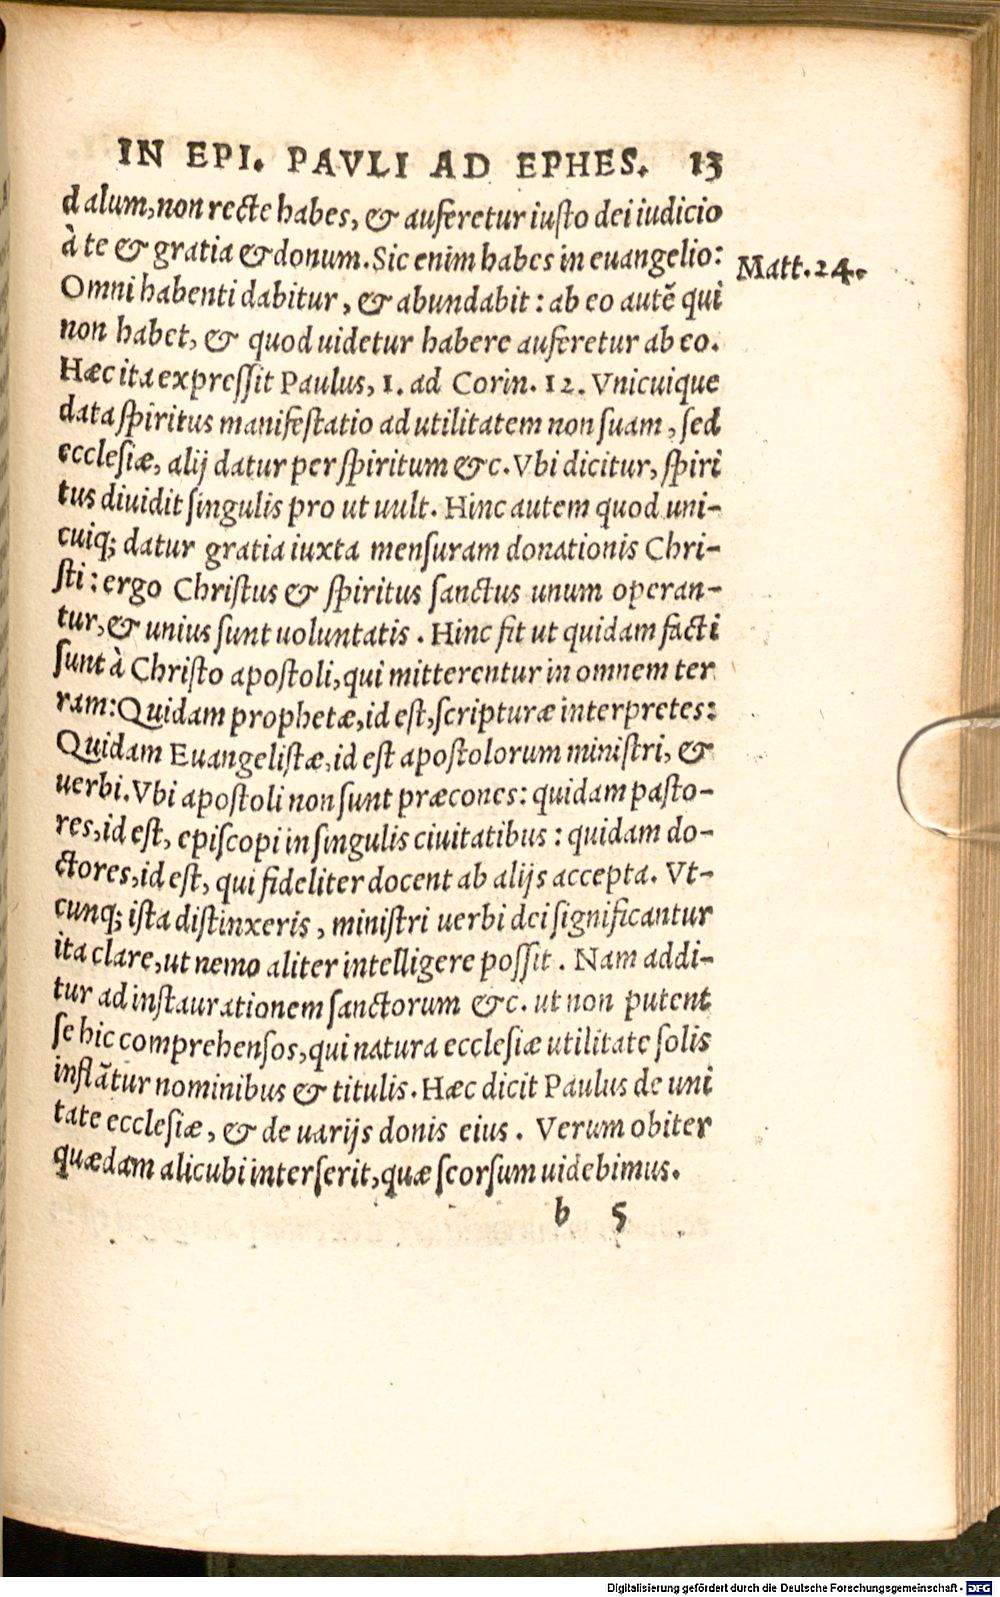 IN EPI. PAVLI AD EPHES. 13
dalum, non recte habes, & auferetur iusto dei iudicio
à te & gratia & donum. Sic enim habes in euangelio:
Matt. 24.
Omni habenti dabitur, & abundabit: ab eo autẽ qui
non habet, & quod uidetur habere auferetur ab eo.
Hæc ita expreſſit Paulus, 1. ad Corin. 12. Vnicuique
data ſpiritus manifeſtatio ad utilitatem non ſuam, ſed
eccleſiæ, alij datur per ſpiritum &c. Vbi dicitur, ſpiri
tus diuidit ſingulis pro ut uult. Hinc autem quod uni-
cuiq; datur gratia iuxta menſuram donationis Chri-
ſti: ergo Chriſtus & ſpiritus ſanctus unum operan-
tur, & unius ſunt uoluntatis. Hinc fit ut quidam facti
ſunt à Chriſto apoſtoli, qui mitterentur in omnem ter
ram: Quidam prophetæ, id eſt, ſcripturæ interpretes:
Quidam Euangeliſtæ, id eſt apoſtolorum miniſtri, &
uerbi. Vbi apoſtoli non ſunt præcones: quidam paſto-
res, id eſt, epiſcopi in ſingulis ciuitatibus: quidam do-
ctores, id eſt, qui fideliter docent ab alijs accepta. Vt-
cunq; iſta diſtinxeris, miniſtri uerbi dei ſignificantur
ita clare, ut nemo aliter intelligere poſſit. Nam addi-
tur ad inſtaurationem ſanctorum &c. ut non putent
ſe hic comprehenſos, qui natura eccleſiæ utilitate ſolis
inflãtur nominibus & titulis. Hæc dicit Paulus de uni
tate eccleſiæ, & de uarijs donis eius. Verum obiter
quædam alicubi interſerit, quæ ſeorſum uidebimus.
b 5
Digitalisierung gefördert durch die Deutsche Forschungsgemeinschaft - DFG